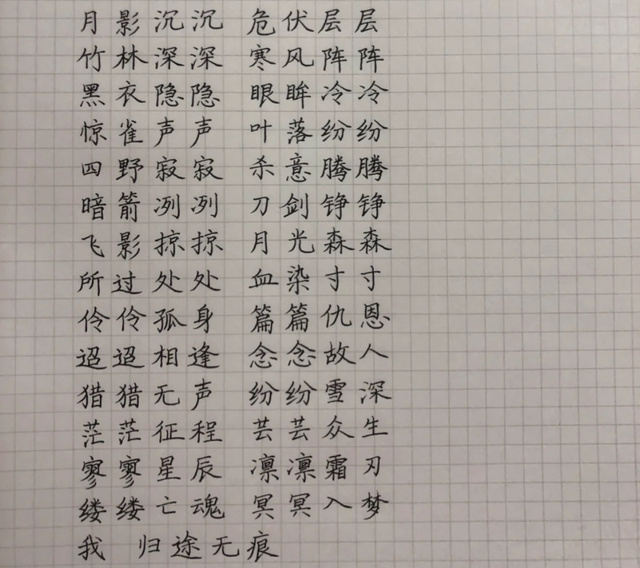 月影沉沉 危伏层层
竹林深深 寒风阵阵
黑衣隐隐 眼眸冷冷
惊雀声声 叶落纷纷
四野寂寂 杀意腾腾
暗箭冽冽 刀剑铮铮
飞影掠掠 月光森森
所过处处 血染寸寸
伶伶孤身 篇篇仇恩
迢迢相逢 念念故人
猎猎无声 纷纷雪深
茫茫征程 芸芸众生
寥寥星辰 凛凛霜刃
缕缕亡魂 冥冥入梦
我 归途无痕